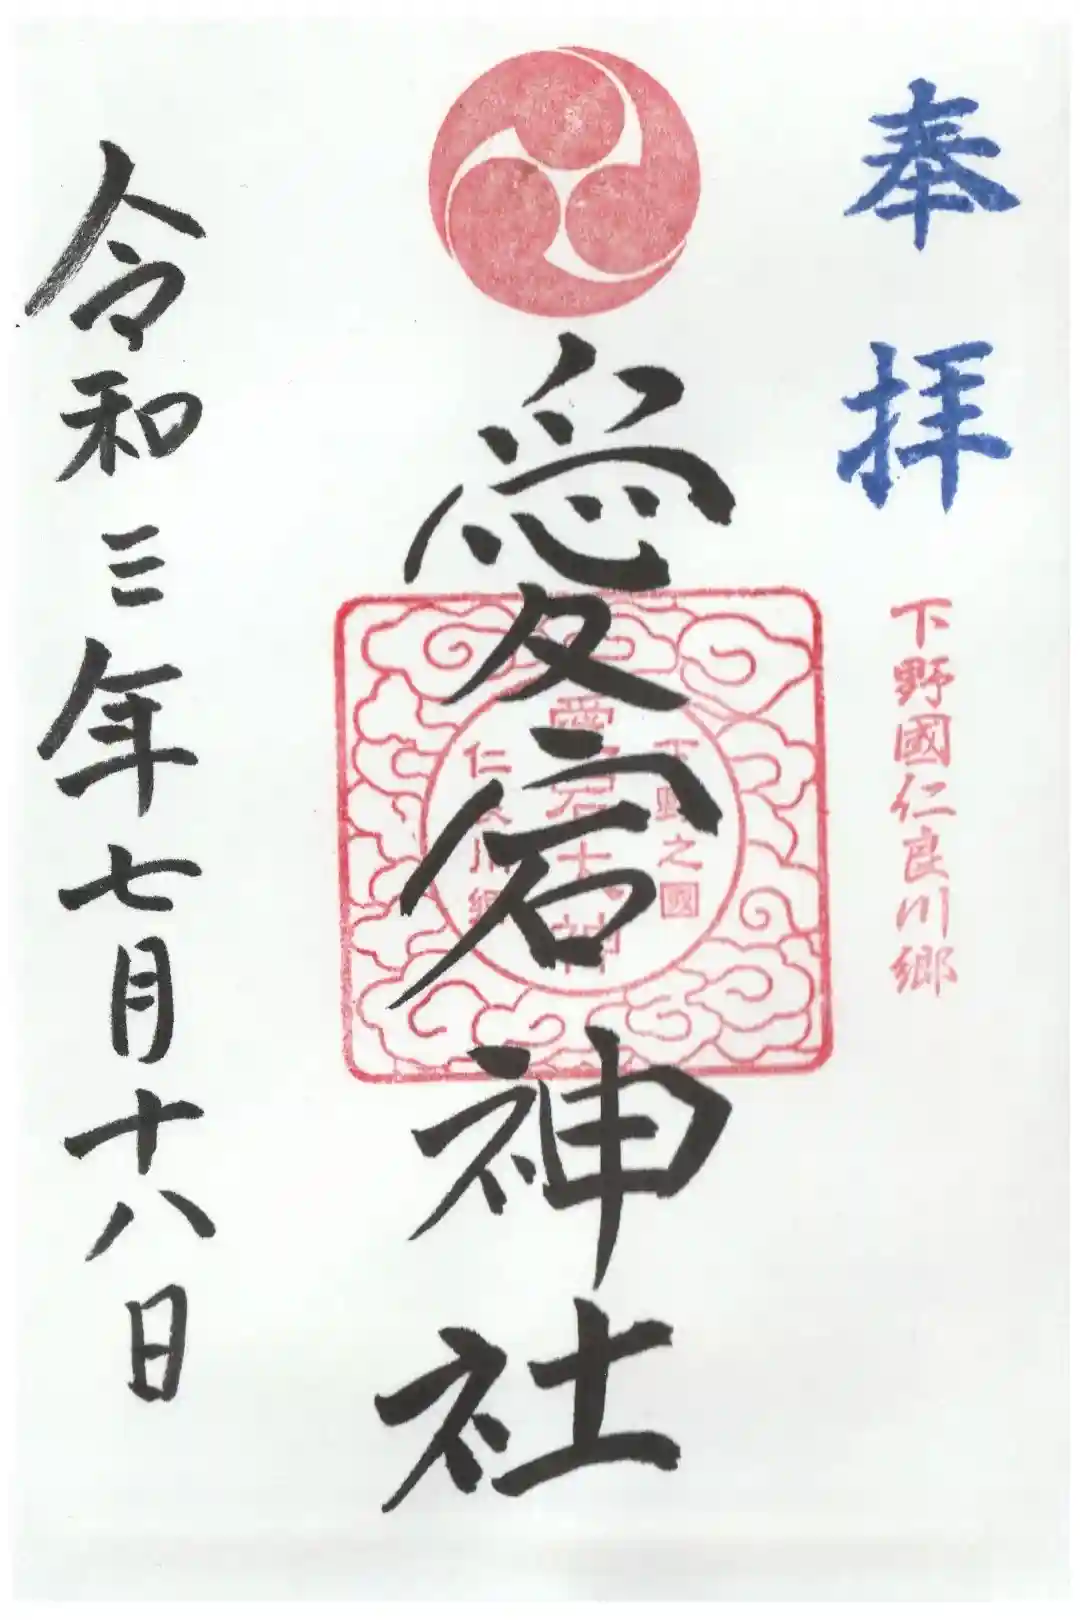 奉拝
下野國仁良川郷
愛宕神社
下野之國
愛宕大神
仁良川郷
令和三年七月十八日